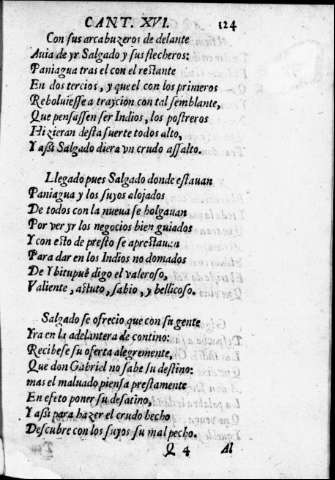 CANT. XVI. 124
Con sus arcabuzeros de delante
Auia de yr Salgado y sus flecheros:
Paniagua tras el con el restante
En dos tercios, y que el con los primeros
Reboluiesse a trayción con tal semblante,
Que pensassen ser Indios, los postreros
Hizieran desta suerte todos alto,
Y assi Salgado diera vn crudo assalto.
Llegado pues Salgado donde estauan
Paniagua y los suyos alojados
De todos con la nueua se holgauan
Por ver yr los negocios bien guiados
Y con esto de presto se aprestauan
Para dar en los Indios no domados
De Ybitupuê digo el valeroso,
Valiente, astuto, sabio, y bellicoso.
Salgado se ofrecio que con su gente
Yra en la adelantera de contino:
Recibese su oferta alegremente,
Que don Gabriel no sabe su destino:
mas el maluado piensa prestamente
En efeto poner su desatino,
Y assi para hazer el crudo hecho
Descubre con los suyos su mal pecho.
Q 4 Al